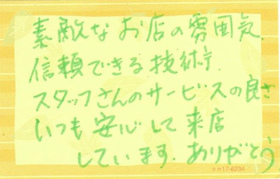 素敵なお店の雰囲気
信頼できる技術。
スタッフさんのサービスの良さ
いつも安心して来店
しています。ありがとう